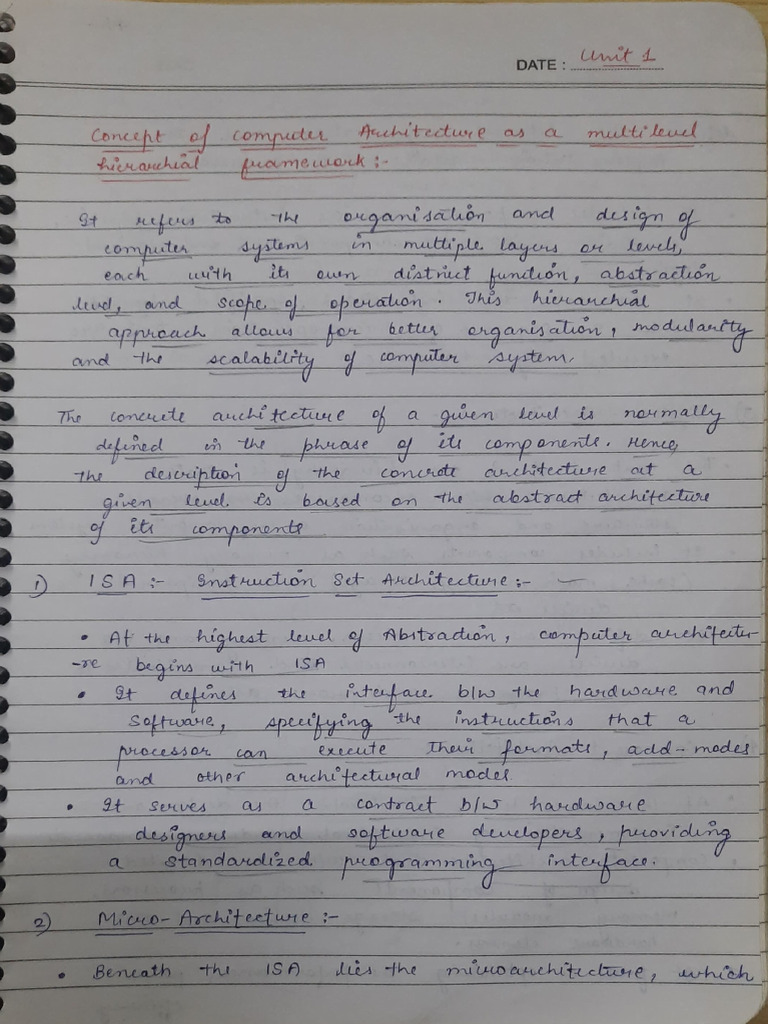 DATE : Unit 1
Concept of computer Architecture as a multilevel
hierarchial framework :-
It refers to the organisation and design of
computer systems in multiple layers or levels,
each with its own distrct function, abstraction
level, and scope of operation. This hierarchial
approach allows for better organisation, modularity
and the scalability of computer system.
The concrete architecture of a given level is normally
defined in the phrase of its components. Hence,
the description of the concrete architecture at a
given level is based on the abstract architecture
of its components
1) ISA :- Instruction Set Architecture :-
• At the highest level of Abstraction, computer architectu-
-re begins with ISA
• It defines the interface b/w the hardware and
Software, specifying the instructions that a
processor can execute their formats, add-modes
and other architectural modes
• It serves as a contract b/w hardware
designers and software developers, providing
a standardized programming interface.
2) Micro-Architecture :-
• Beneath the ISA lies the microarchitecture, which